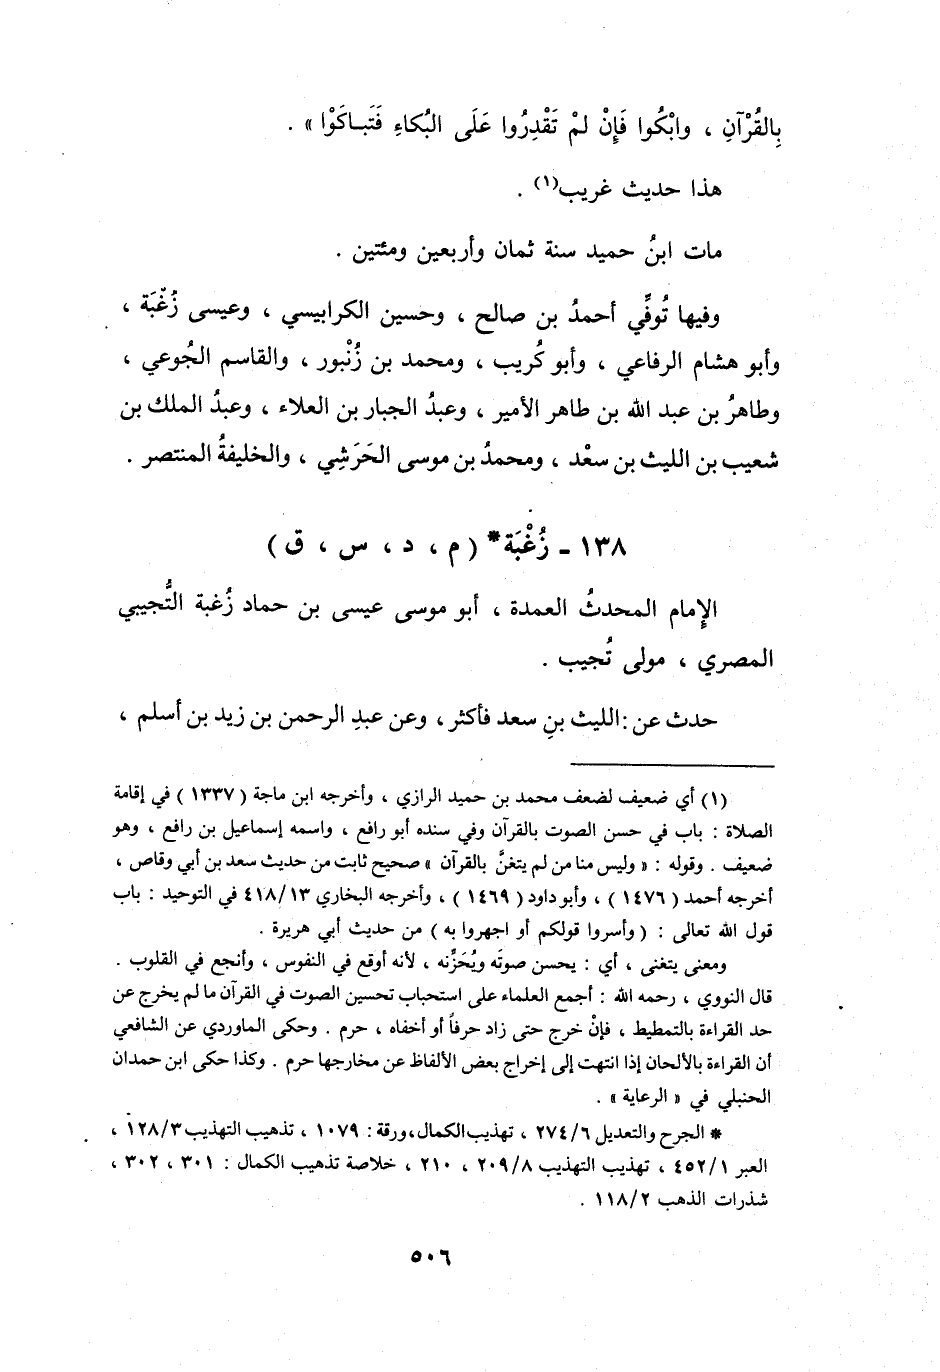 بِالقُرْآنِ ، وابْكُوا فَإِنْ لمْ تَقْدِرُوا عَلَى البُكاءِ فَتَبـاكَوْا » .
هذا حديث غريب(١) .
مات ابنُ حميد سنة ثمان وأربعين ومئتين .
وفيها تُوفِّي أحمدُ بن صالح ، وحسين الكرابيسي ، وعيسى زُغْبَة ،
وأبو هشام الرفاعي ، وأبو كُريب ، ومحمد بن زُنْبور ، والقاسم الجُوعي ،
وطاهرُ بن عبد الله بن طاهر الأمير ، وعبدُ الجبار بن العلاء ، وعبدُ الملك بن
شعيب بن الليث بن سعْد ، ومحمدُ بن موسى الحَرَشِي ، والخليفةُ المنتصر .
١٣٨ ـ زُغْبَة* ( م ، د ، س ، ق )
الإِمام المحدثُ العمدة ، أبو موسى عيسى بن حماد زُغبة التُّجيبي
المصري ، مولى تُجيب .
حدث عن : الليث بنِ سعد فأكثر ، وعن عبدِ الرحمن بن زيد بن أسلم ،
(١) أي ضعيف لضعف محمد بن حميد الرازي ، وأخرجه ابن ماجة ( ١٣٣٧ ) في إقامة
الصلاة : باب في حسن الصوت بالقرآن وفي سنده أبو رافع ، واسمه إسماعيل بن رافع ، وهو
ضعيف . وقوله : « وليس منا من لم يتغنَّ بالقرآن » صحيح ثابت من حديث سعد بن أبي وقاص ،
أخرجه أحمد ( ١٤٧٦ ) ، وأبو داود ( ١٤٦٩ ) ، وأخرجه البخاري ٤١٨/١٣ في التوحيد : باب
قول الله تعالى : ( وأسروا قولكم أو اجهروا به ) من حديث أبي هريرة .
ومعنى يتغنى ، أي : يحسن صوتَه ويُحَزِّنه ، لأنه أوقع في النفوس ، وأنجع في القلوب .
قال النووي ، رحمه الله : أجمع العلماء على استحباب تحسين الصوت في القرآن ما لم يخرج عن
حد القراءة بالتمطيط ، فإنْ خرج حتى زاد حرفاً أو أخفاه ، حرم . وحكى الماوردي عن الشافعي
أن القراءة بالألحان إذا انتهت إلى إخراج بعض الألفاظ عن مخارجها حرم . وكذا حكى ابن حمدان
الحنبلي في « الرعاية » .
* الجرح والتعديل ٢٧٤/٦ ، تهذيب الكمال، ورقة : ١٠٧٩ ، تذهيب التهذيب ١٢٨/٣ ،
العبر ٤٥٢/١ ، تهذيب التهذيب ٢٠٩/٨ ، ٢١٠ ، خلاصة تذهيب الكمال : ٣٠١ ، ٣٠٢ ،
شذرات الذهب ١١٨/٢ .
٥٠٦